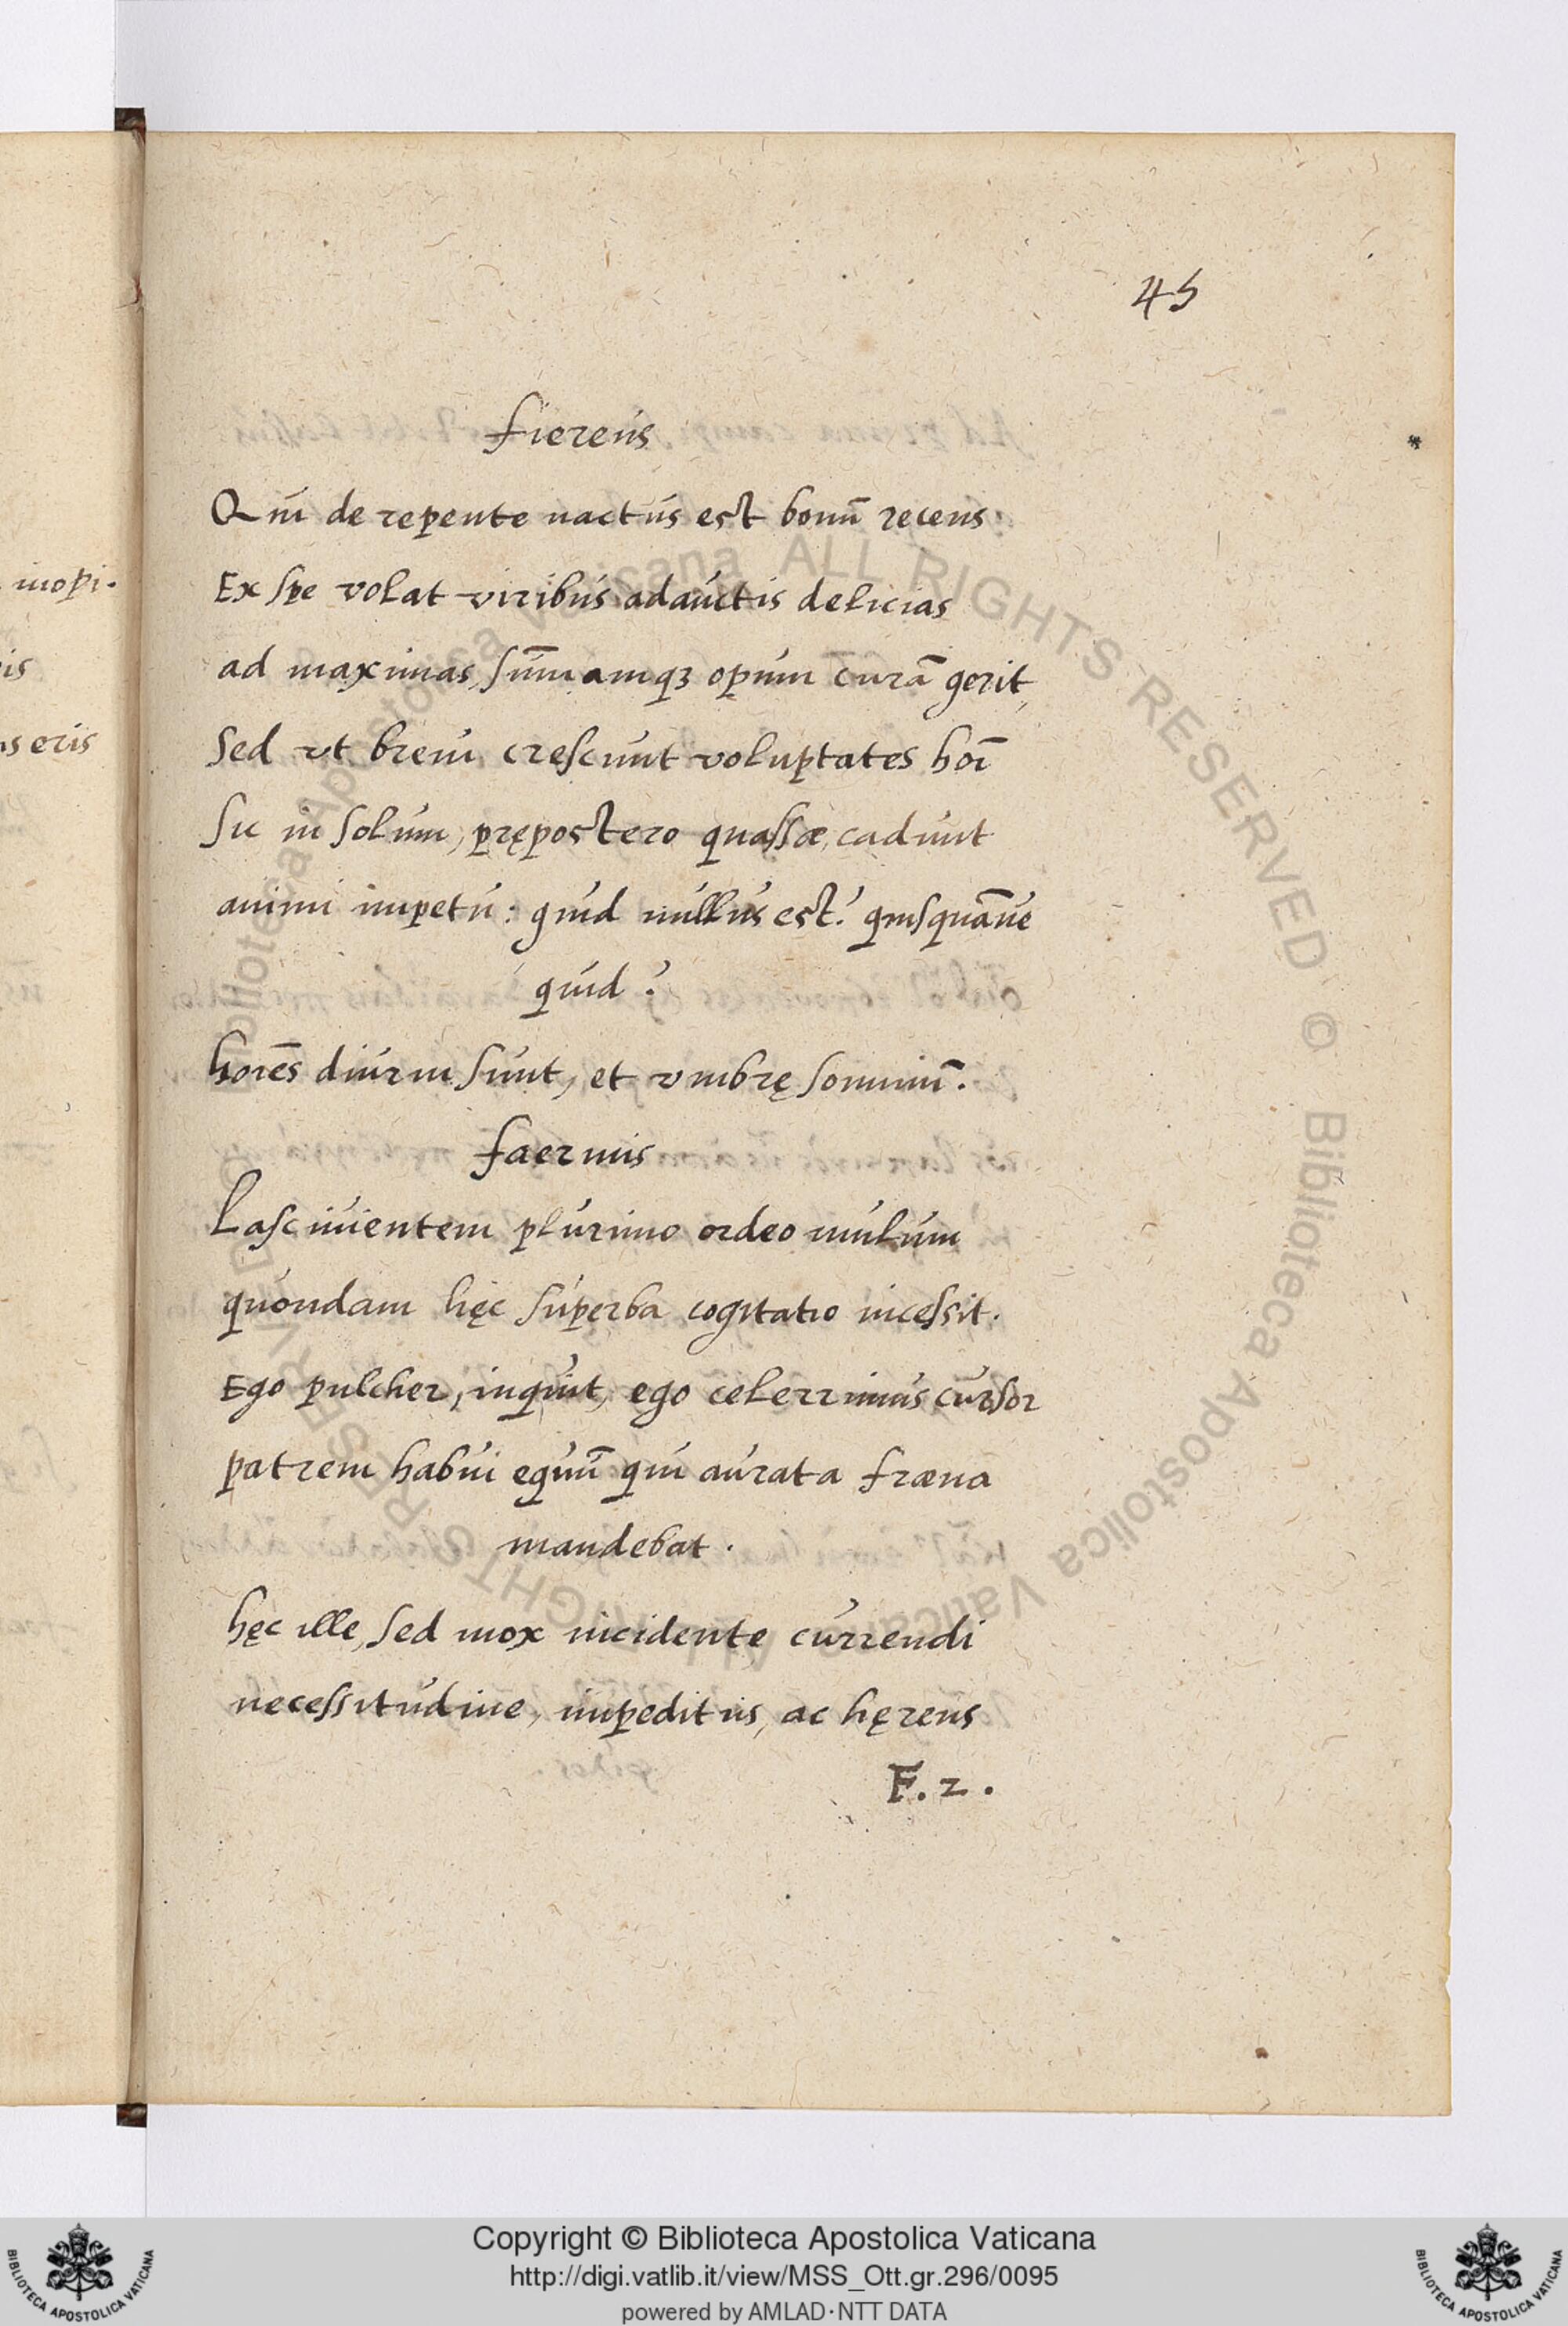 45
fierens
Qui de repente nactus est bonū recens
Ex spe volat viribus adauctis delicias
ad maximas, sūmamq3 opum curā gerit,
Sed vt breui crescunt voluptates hoī
sic in solum, prępostero quassæ, cadunt
animi impetu: quid nullus est? quisquāue
quid?
hoīes diurni sunt, et vmbrę somniū.
faernus
Lasciuientem plurimo ordeo mulum
quondam hęc superba cogitatio incessit.
Ego pulcher, inquit, ego celerrimus cursor
patrem habui equū qui aurata fræna
mandebat.
hęc ille, sed mox incidente currendi
necessitudine, impeditus, ac hęrens
F.2.
inopi.
is
s eris
Biblioteca Apostolica Vaticana ALL RIGHTS RESERVED © Biblioteca Apostolica Vaticana ALL RIGHTS RESERVED
Copyright © Biblioteca Apostolica Vaticana
http://digi.vatlib.it/view/MSS_Ott.gr.296/0095
powered by AMLAD·NTT DATA
BIBLIOTECA APOSTOLICA VATICANA
BIBLIOTECA APOSTOLICA VATICANA